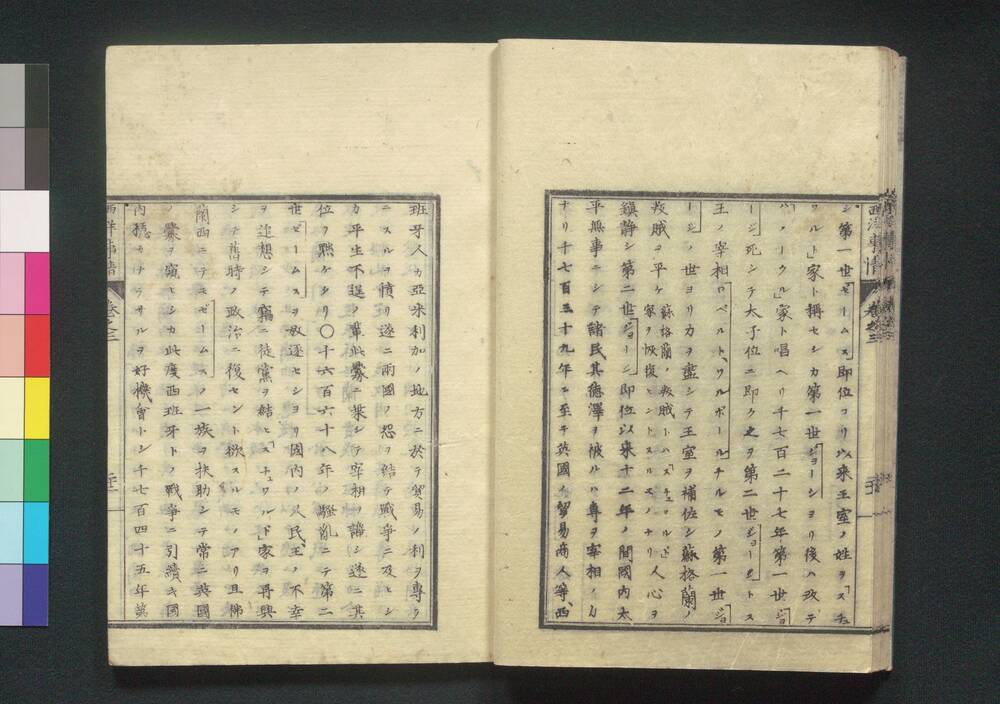 シ第一世「ゼームス」即位ヨリ以来王室ノ姓ヲ「スチュ
ワルト」家ト稱セシカ第一世「ジョージ」ヨリ後ハ改テ
「ハノーウル」家ト唱ヘリ千七百二十七年第一世「ジョ
ージ」死シテ太子位ニ即ク之ヲ第二世「ジョージ」トス
王ノ宰相「ロベルト、ワルポール」ナルモノ第一世「ジョ
ージ」ノ世ヨリ力ヲ盡シテ王室ヲ補佐シ蘇格蘭ノ
叛賊ヲ平ケ 蘇格蘭ノ叛賊トハ「スチュワルト」家ヲ恢復セントスルモノナリ 人心ヲ
鎮静シ第二世「ジョージ」即位以来十二年ノ間國内太
平無事ニシテ諸民其德澤ヲ被ルハ專ヲ宰相ノ力
ナリ千七百三十九年ニ至リ英國ノ貿易商人等西
西洋事情 卷之三
班牙人カ亞米利加ノ地方ニ於テ貿易ノ利ヲ專ラ
ニスルヲ憤リ遂ニ兩國ノ怨ヲ結テ戰爭ニ及ヒシ
カ平生不逞ノ輩此釁ニ乘シテ宰相ヲ謗シ遂ニ其
位ヲ黜ケタリ〇千六百六十八年ノ騷亂ニテ第二
世「ゼームス」ヲ放逐セシヨリ國内ノ人民王ノ不幸
ヲ追想シテ竊ニ徒黨ヲ結ヒ「スチュワルト」家ヲ再興
シテ舊時ノ政治ニ復セント欲スルモノアリ且佛
蘭西ニテモ「ゼームス」ノ一族ヲ扶助シテ常ニ英國
ノ釁ヲ窺ヒシカ此度西班牙トノ戰爭ニ引續キ國
内穩カナラサルヲ好機會トシ千七百四十五年英
西洋事情 卷之三